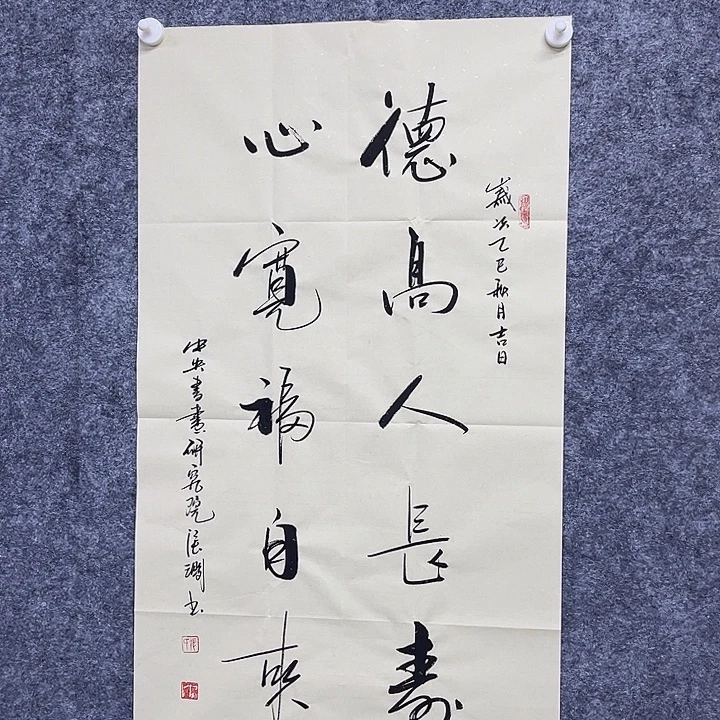 歲次乙巳秋月吉日
德高人長壽
心寬福自來
中央書畫研究院張琱書